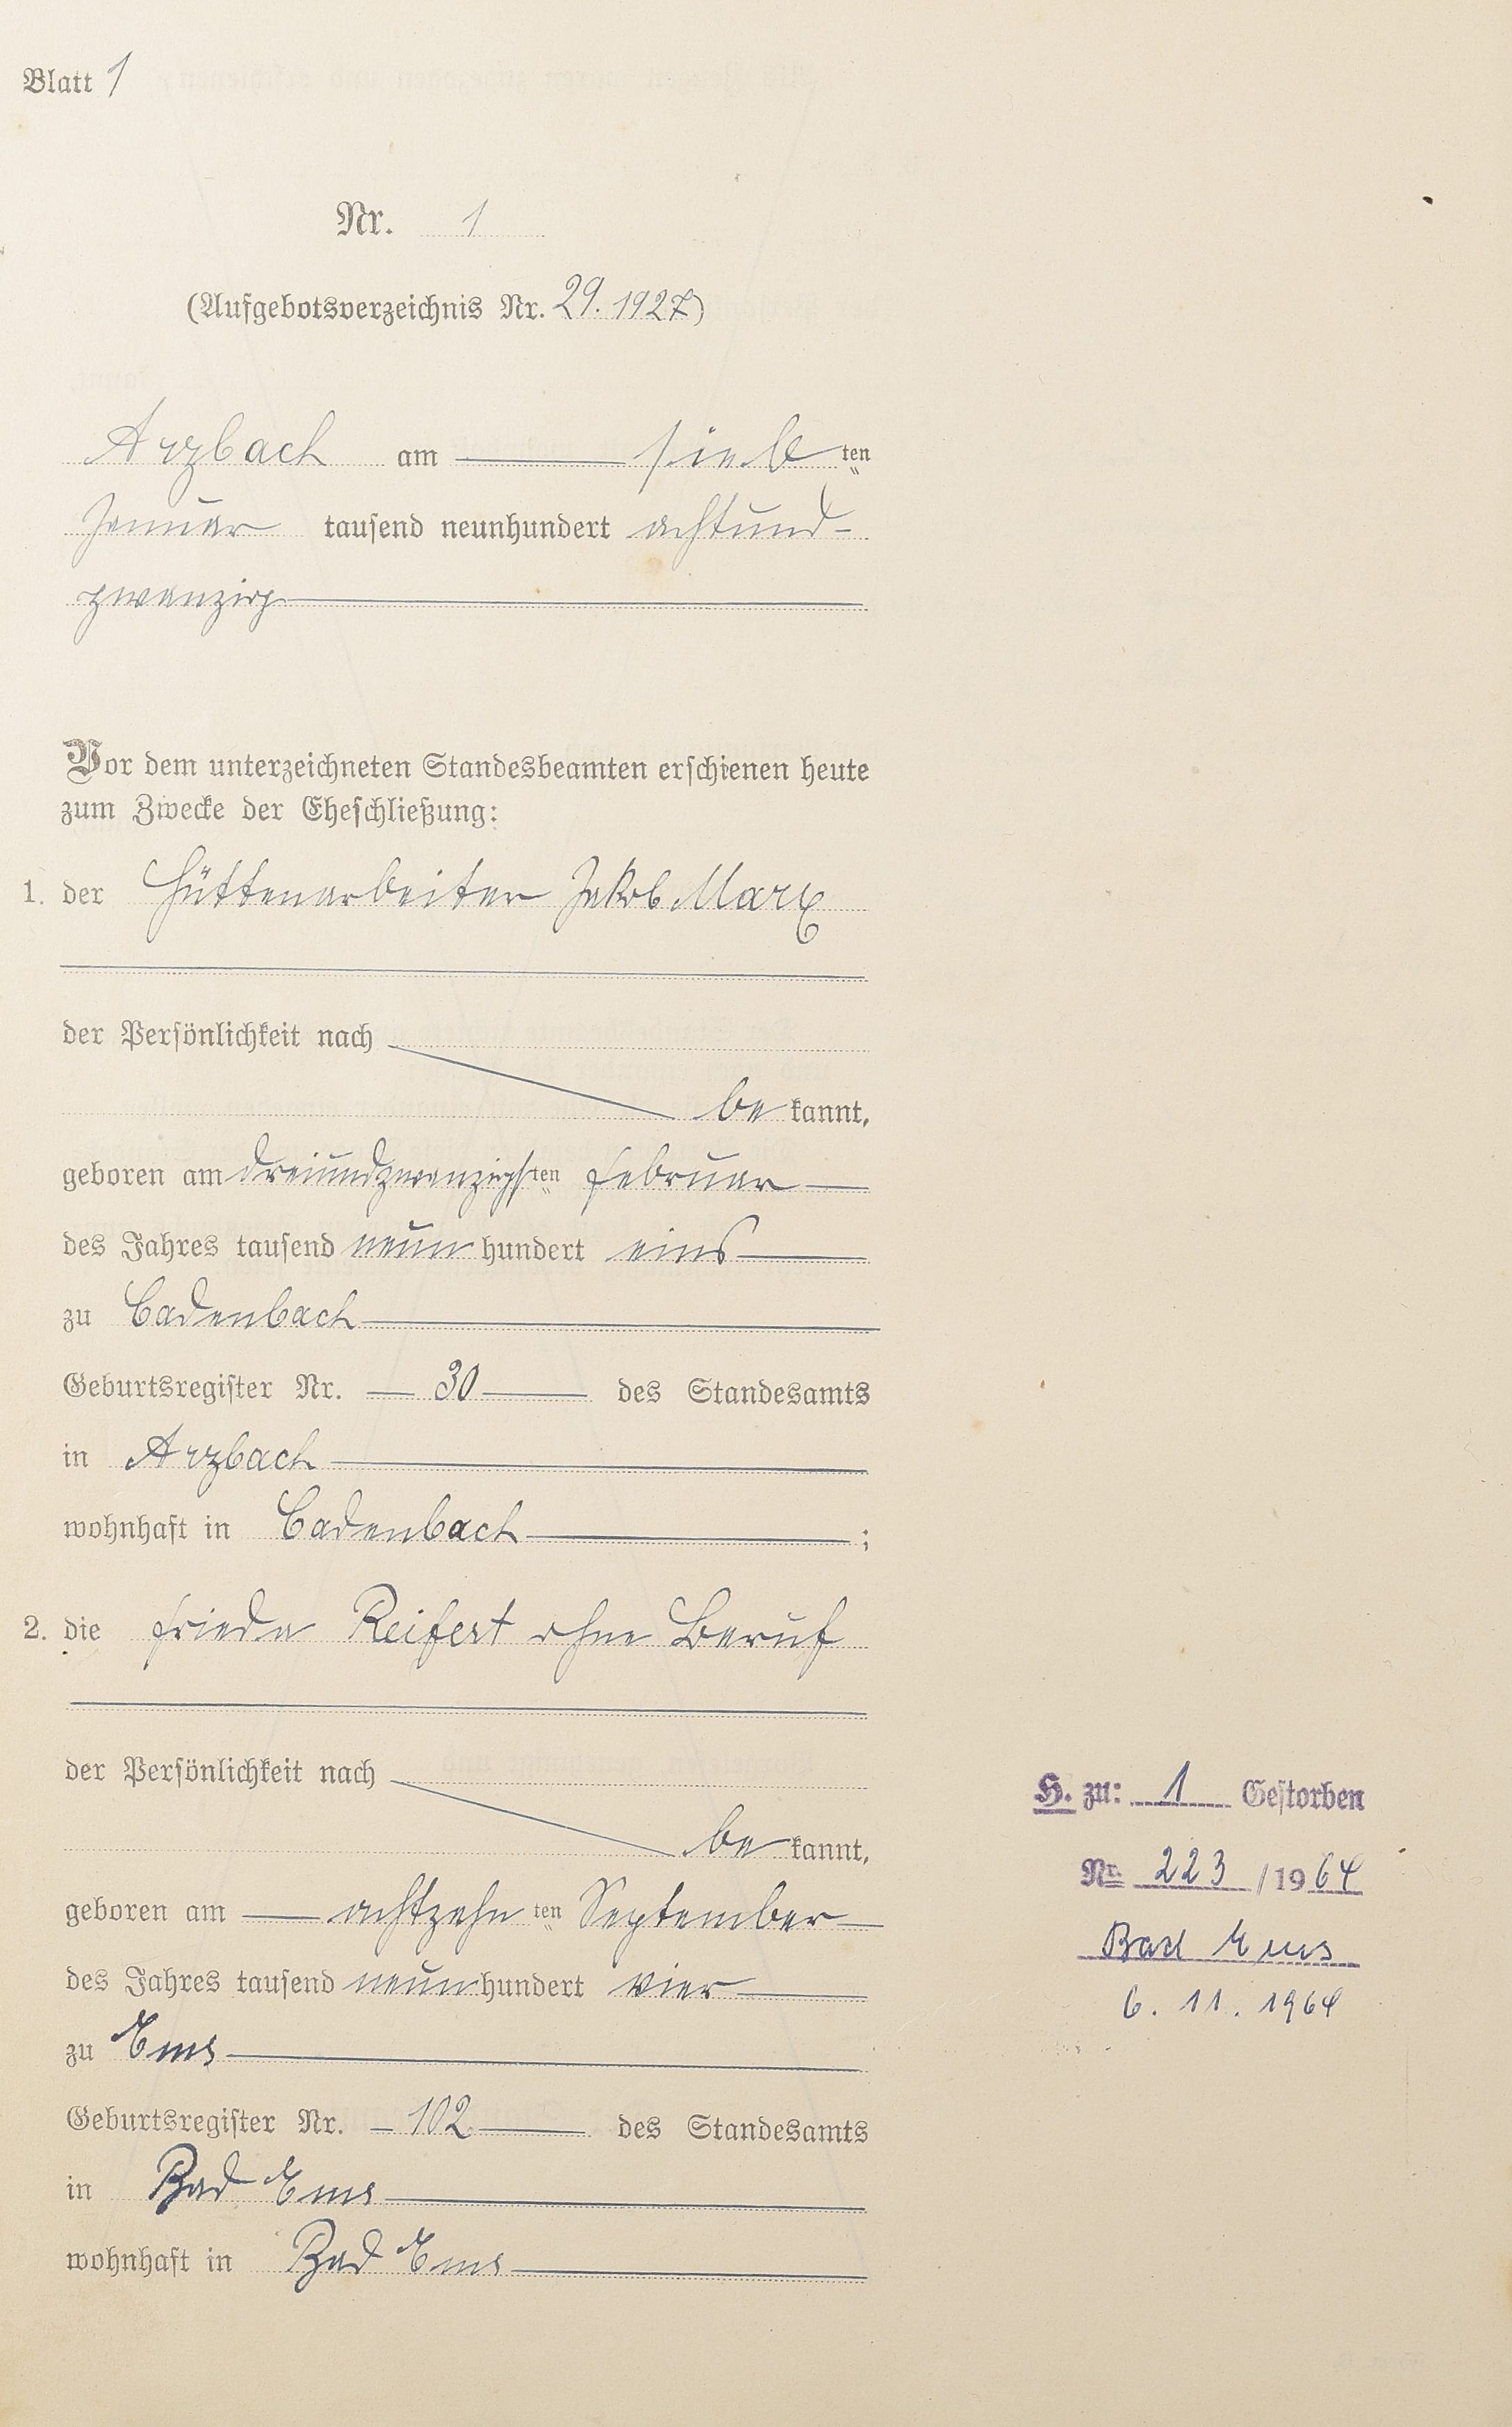 Blatt 1
Nr. 1
(Aufgebotsverzeichnis Nr. 29. 1927)
Arzbach am sieb ten
Januar tausend neunhundert achtund-
zwanzig
Vor dem unterzeichneten Standesbeamten erschienen heute
zum Zwecke der Eheschließung:
1. der Hüttenarbeiter Jakob Marx
der Persönlichkeit nach
be kannt,
geboren am dreiundzwanzigsten Februar
des Jahres tausend neun hundert eins
zu Cadenbach
Geburtsregister Nr. 30 des Standesamts
in Arzbach
wohnhaft in Cadenbach ;
2. die Frieda Reifert ohne Beruf
der Persönlichkeit nach
be kannt,
geboren am achtzehn ten September
des Jahres tausend neun hundert vier
zu Ems
Geburtsregister Nr. 102 des Standesamts
in Bad Ems
wohnhaft in Bad Ems
H. zu: 1 Gestorben
Nr. 223 / 1964
Bad Ems
6. 11. 1964